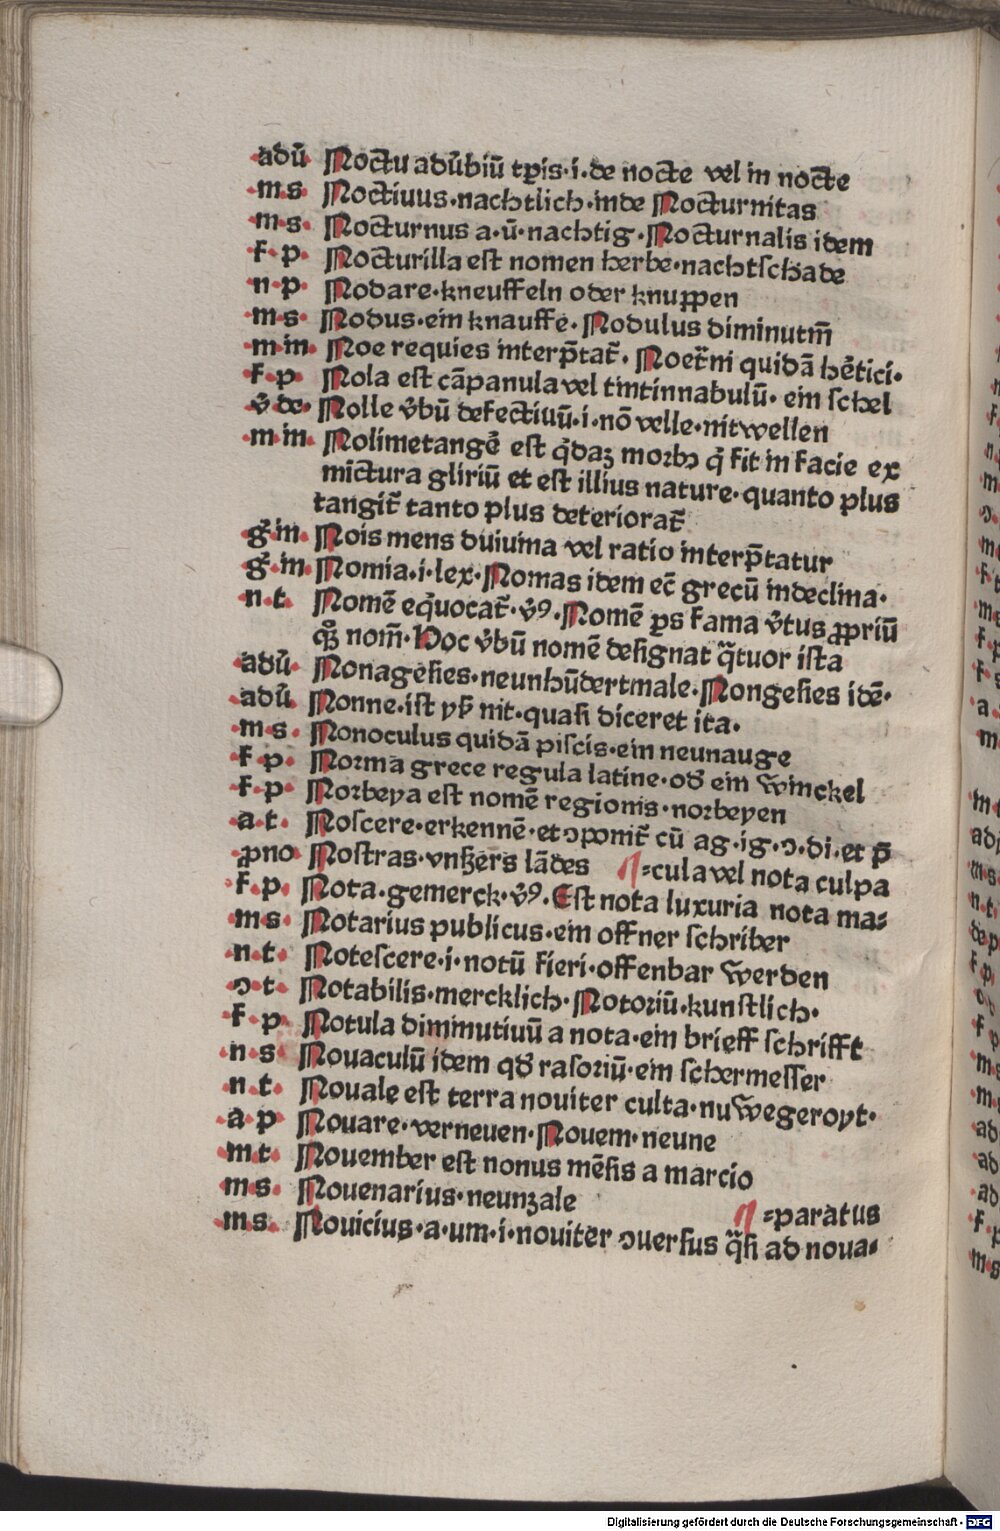 adū Noctu adūbiū tp̄is·i·de nocte vel in nocte
·m·s· Noctiuus·nachtlich·inde Nocturnitas
·m·s· Nocturnus a·ū·nachtig·Nocturnalis idem
·f·p· Nocturilla est nomen herbe·nachtschade
·n·p· Nodare·kneuffeln oder knuppen
·m·s· Nodus·ein knauffe·Nodulus diminutm̄
·m·m· Noe requies interp̄tat᷑·Noet᷑ni quidā hētici·
·f·p· Nola est cāpanula vel tintinnabulū·ein schel
·v̄·de· Nolle v̄bū defectiuū·i·nō velle·nitwellen
·m·m· Nolimetangē est q̄daꝫ morbꝰ q̄ fit in facie ex
mictura gliriū et est illius nature·quanto plus
tangit᷑ tanto plus deteriorat᷑
·g᷑·m· Nois mens diuina vel ratio interp̄tatur
·g᷑·m· Nomia·i·lex·Nomas idem ec̄ grecū indeclina·
·n·t· Nomē eq̄uocat᷑·v̄ꝰ·Nomē ꝑs fama v̄tus ꝓpriū
nom̄·Hoc v̄bū nomē designat q̄tuor ista
·adū· Nonagesies·neunhūdertmale·Nongesies idē·
·adū· Nonne·ist nit·quasi diceret ita·
·m·s· Nonoculus quidā piscis·ein neunauge
·f·p· Norma grece regula latine·od᷑ ein winckel
·f·p· Norbeya est nomē regionis·norbeyen
·a·t· Noscere·erkennē·et ɔponit᷑ cū ag·ig·ɔ·di·et p̄
·ꝓno Nostras·vnßers lādes ¶ ⸗cula vel nota culpa
·f·p· Nota·gemerck·v̄ꝰ·Est nota luxuria nota ma⸗
·m·s· Notarius publicus·ein offner schriber
·n·t· Notescere·i·notū fieri·offenbar werden
·ɔ·t· Notabilis·mercklich·Notoriū·kunstlich·
·f·p· Notula diminutiuū a nota·ein brieff schrifft
·n·s· Nouaculū idem qd᷑ rasoriū·ein schermesser
·n·t· Nouale est terra nouiter culta·nuwegeroyt·
·a·p· Nouare·verneuen·Nouem·neune
·m·t· Nouember est nonus mēsis a marcio
·m·s· Nouenarius·neunzale ¶ ⸗paratus
·m·s· Nouicius·a·um·i·nouiter ɔuersus q̄si ad noua⸗
Digitalisierung gefördert durch die Deutsche Forschungsgemeinschaft - DFG